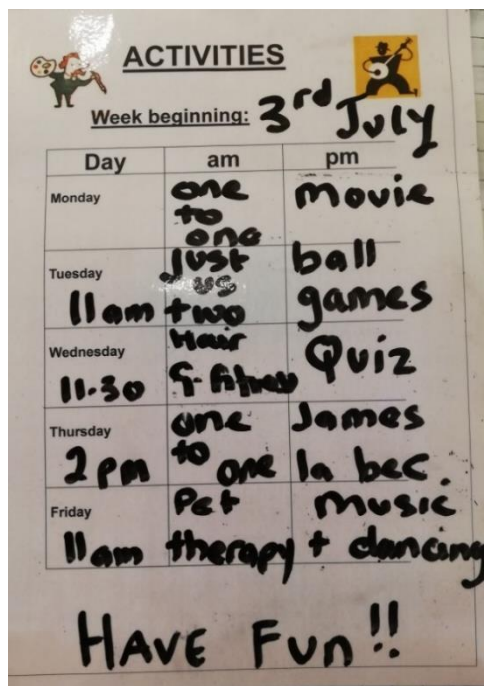 ACTIVITIES
Week beginning: 3rd July
Day am pm
Monday one to one Movie
Tuesday 11am Just us two ball games
Wednesday 11.30 Hair & fitness Quiz
Thursday 2pm one to one James la bec
Friday 11am Pet therapy music + dancing
HAVE FUN!!